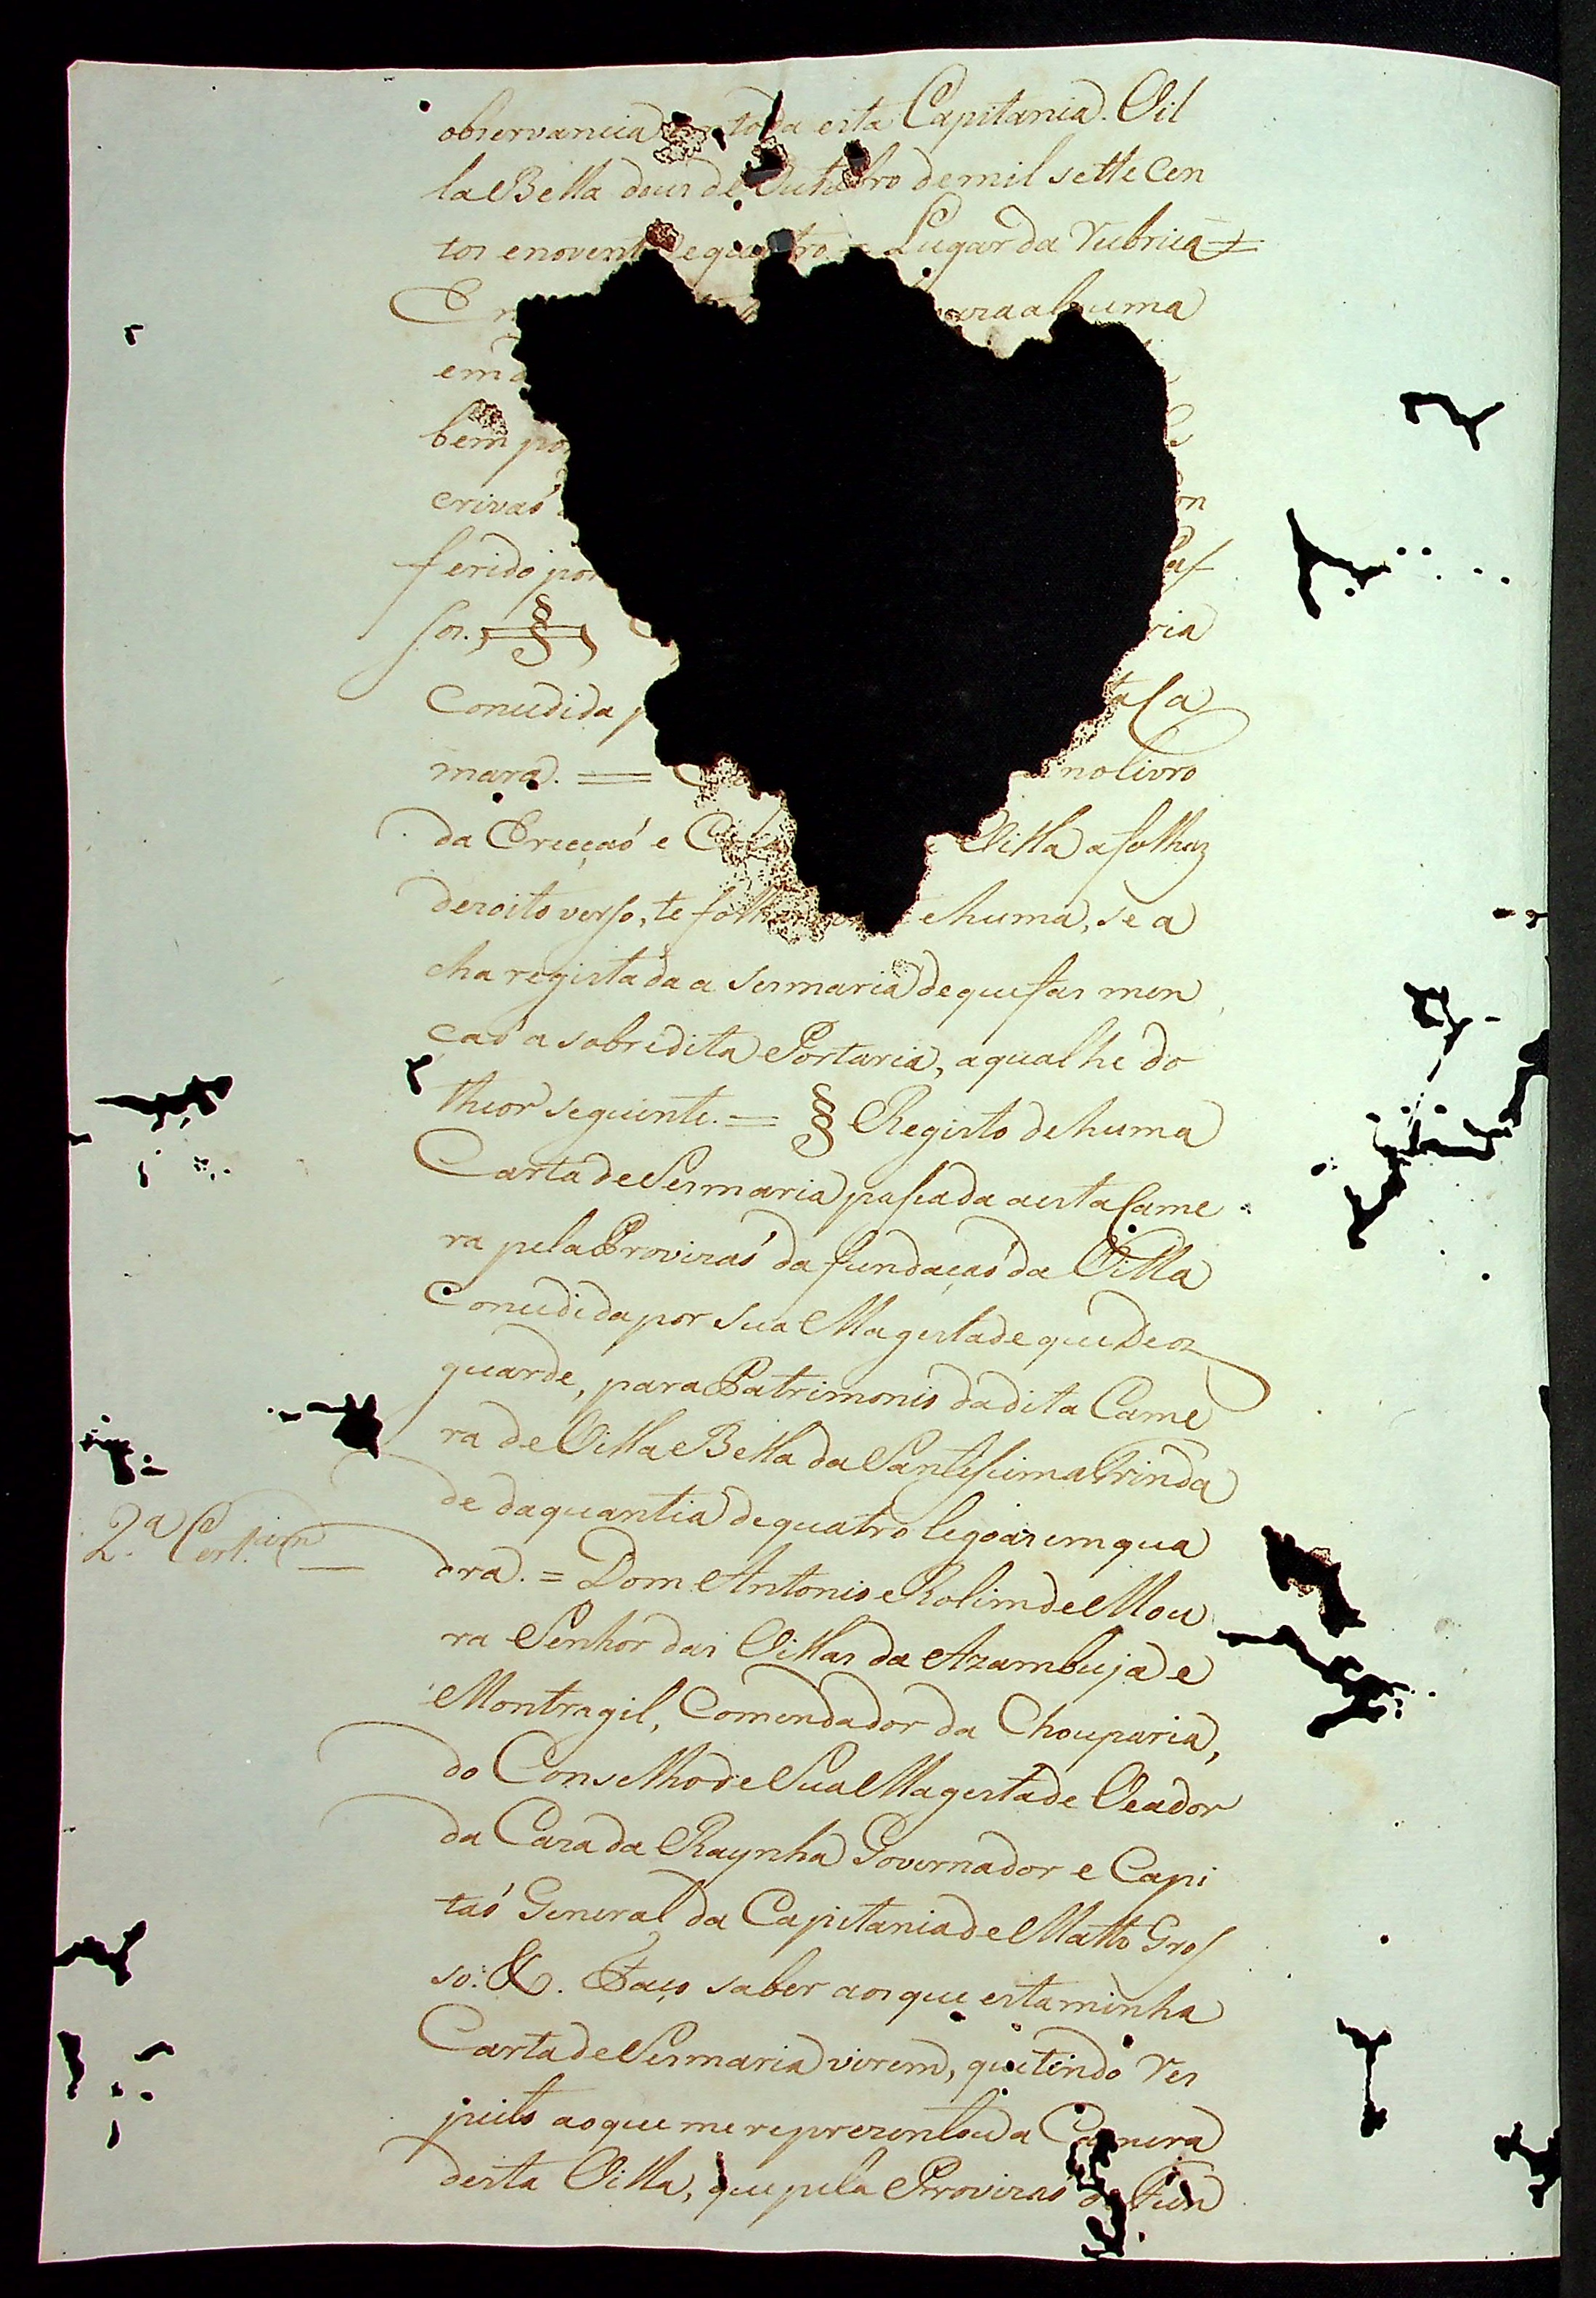 observancia em toda esta Capitania. Vil
la Bella dous de Outubro de mil sette cen
tos e noventa e quatro = Lugar da rubrica =
E
huma
em
bem
crivaó
on
ferido por
as
sos. §
ria
Concedida
ta Ca
mara. =
no livro
da Erecçaó e
Villa a folhas
dezoito verso, te folhas e huma, se a
cha registada a sesmaria de que fas men
çaó a sobredita Portaria, a qual he do
theor seguinte. = § Registo de huma
Carta de Sesmaria passada a esta Came
ra pela Provizaó da fundaçaó da Villa
Concedida por Sua Magestade que Deos
guarde, para Patrimonio da dita Came
ra de Villa Bella da Santissima Trinda
de da quantia de quatro legoas em qua
2.ª Cert.
dra. = Dom Antonio Rolim de Mou
ra Senhor das Villas da Azambuja e
Montragil, Comendador da Chouparia,
do Conselho de Sua Magestade Veador
da Caza da Raynha Governador e Capi
taó General da Capitania de Matto Gros
so. &. Faço saber aos que esta minha
Carta de Sesmaria virem, que tendo res
peito ao que me reprezentou a Camera
desta Villa, que pela Provizaó da Fun